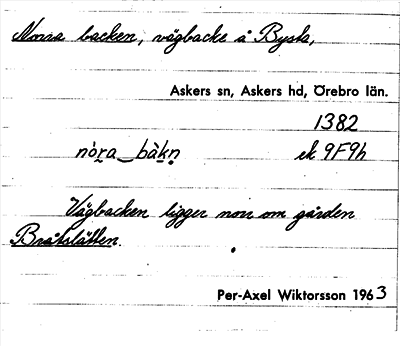 Norra backen, vägbacke å Bysta,
Askers sn, Askers hd, Örebro län.
1382
nò̱ra‿bàkn̥ ek 9F9h
Vägbacken ligger norr om gården
Bråtslätten.
Per-Axel Wiktorsson 1963